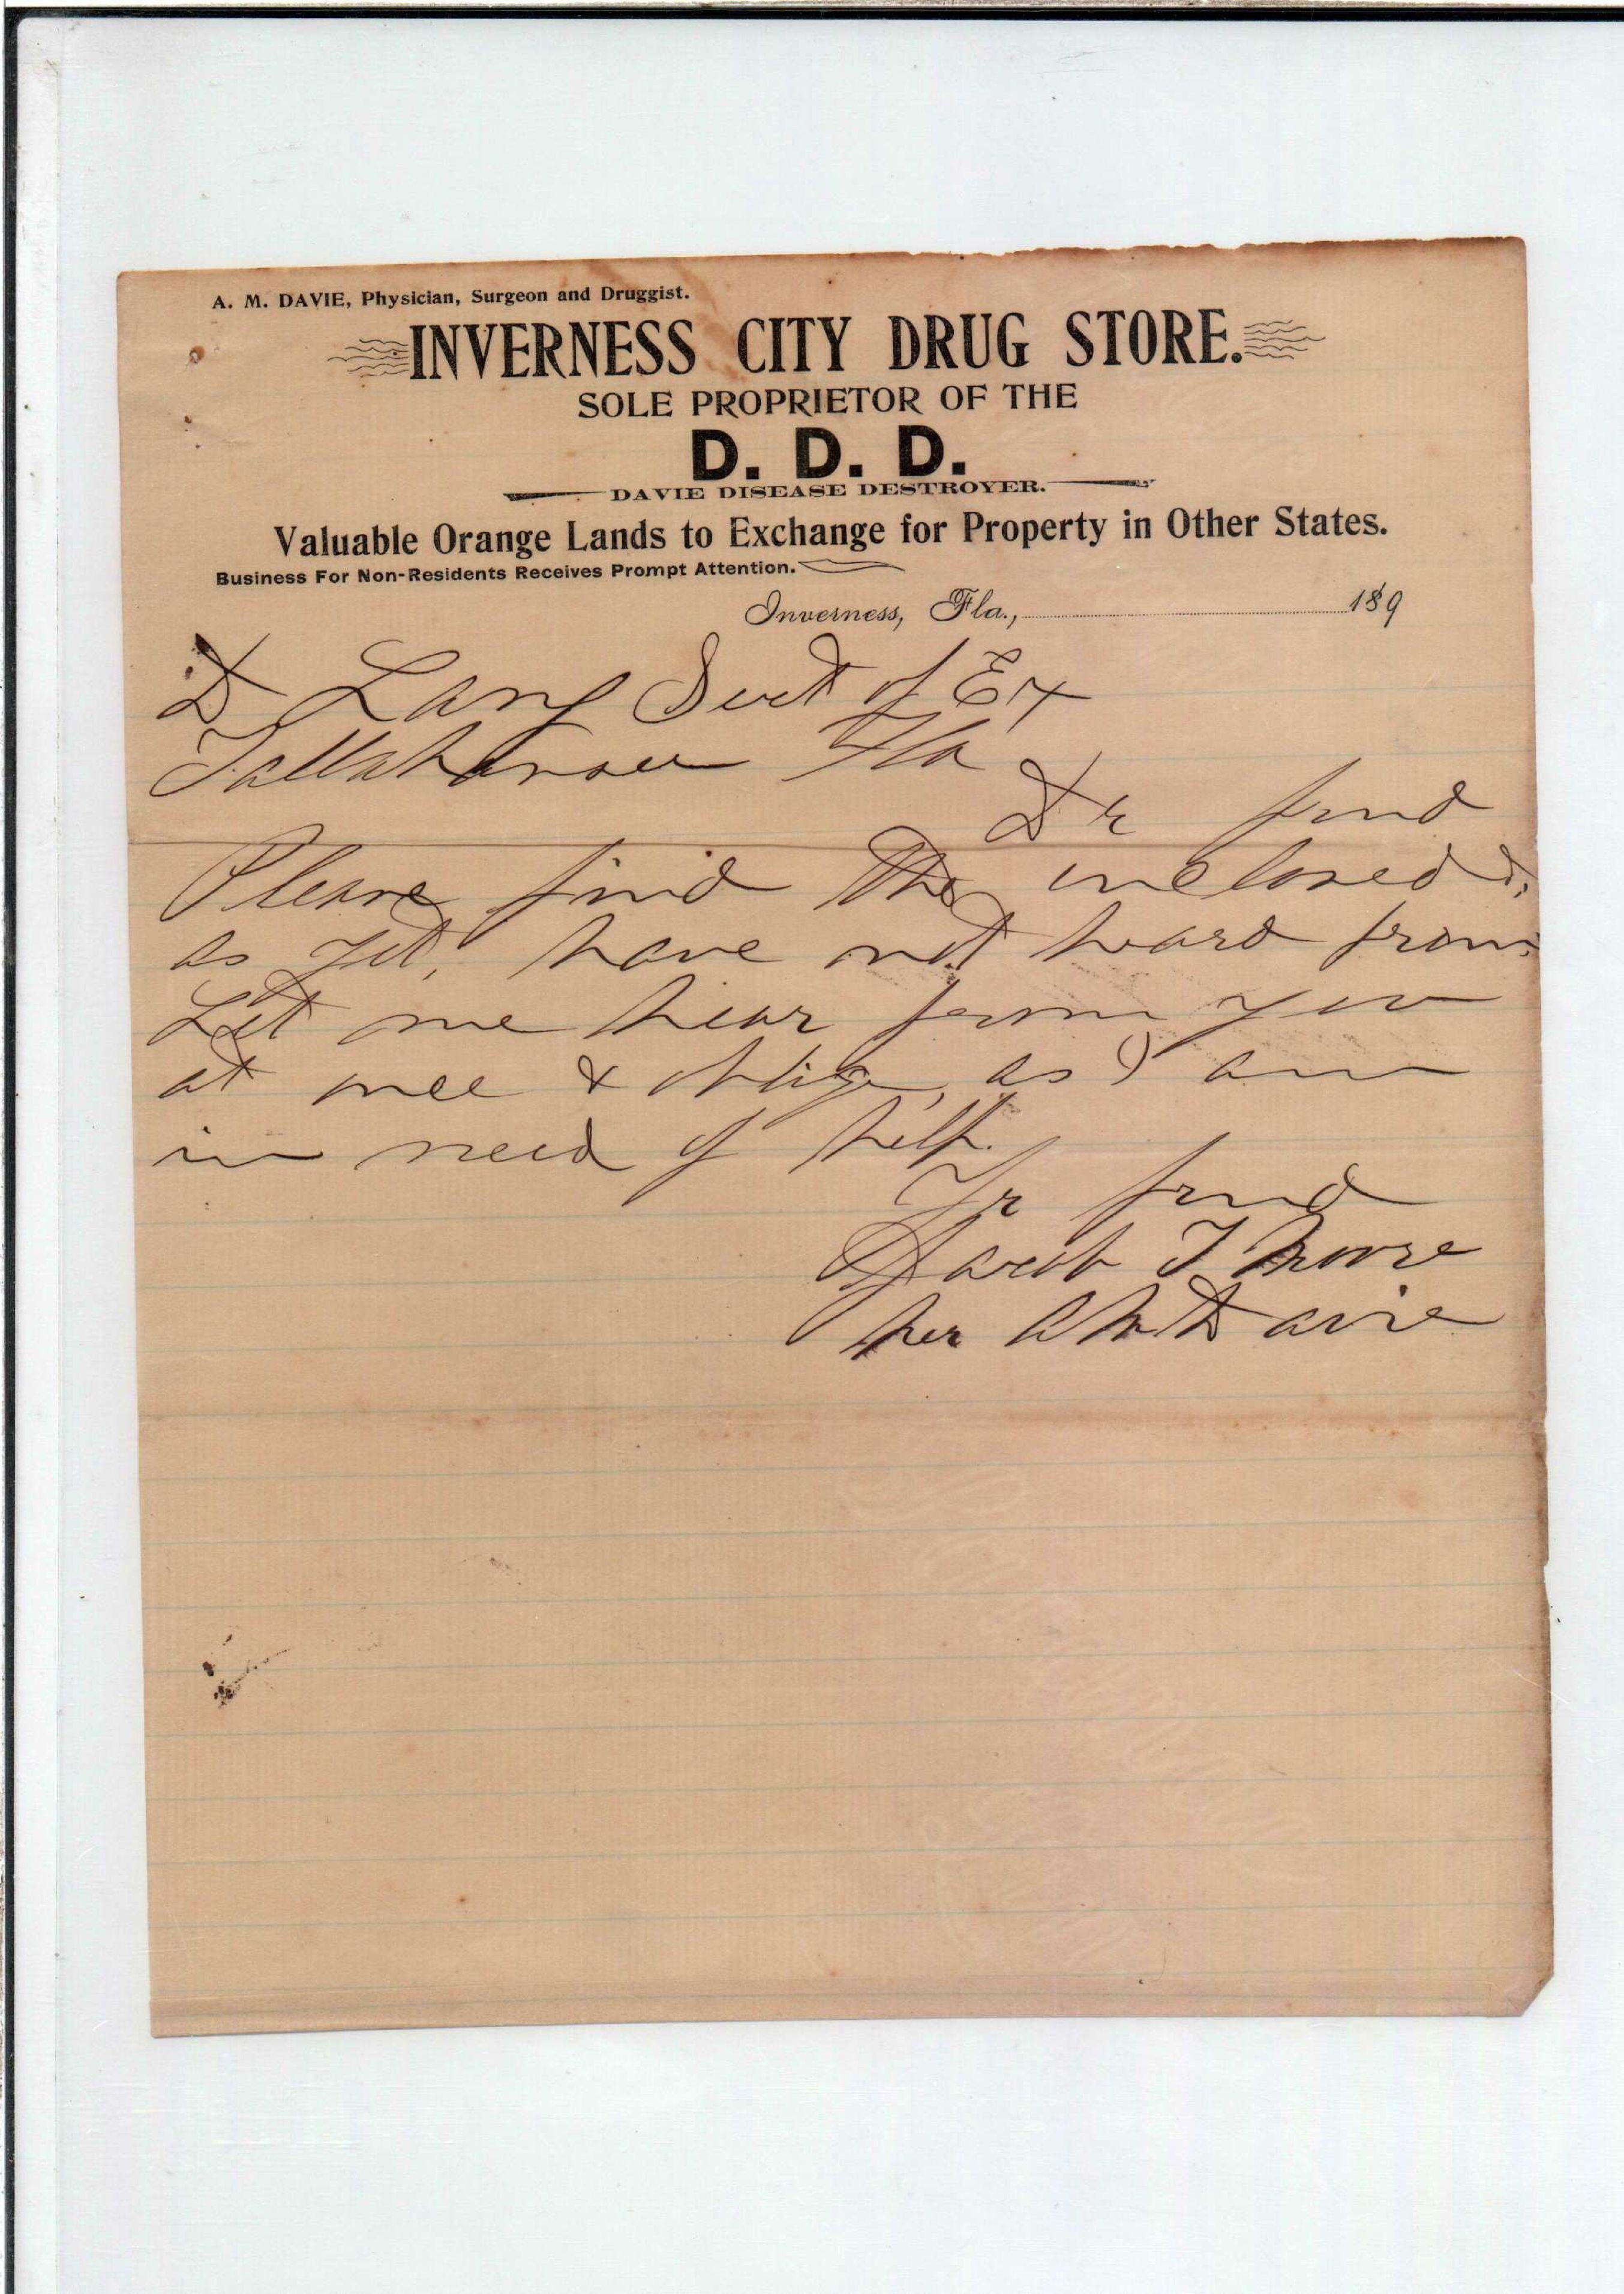 A. M. DAVIE, Physician, Surgeon and Druggist.
INVERNESS CITY DRUG STORE.
SOLE PROPRIETOR OF THE
D. D. D.
DAVIE DISEASE DESTROYER.
Valuable Orange Lands to Exchange for Property in Other States.
Business For Non-Residents Receives Prompt Attention.
Inverness, Fla., 189
D Lang Sect of Ex
Tallahassee Fla
Dr frnd
Please find the inclosed
as yet, have not heard from
Let me hear from you
at once & oblige, as I am
in need of help.
Yr frnd
Jacob T Moore
per A M Davie